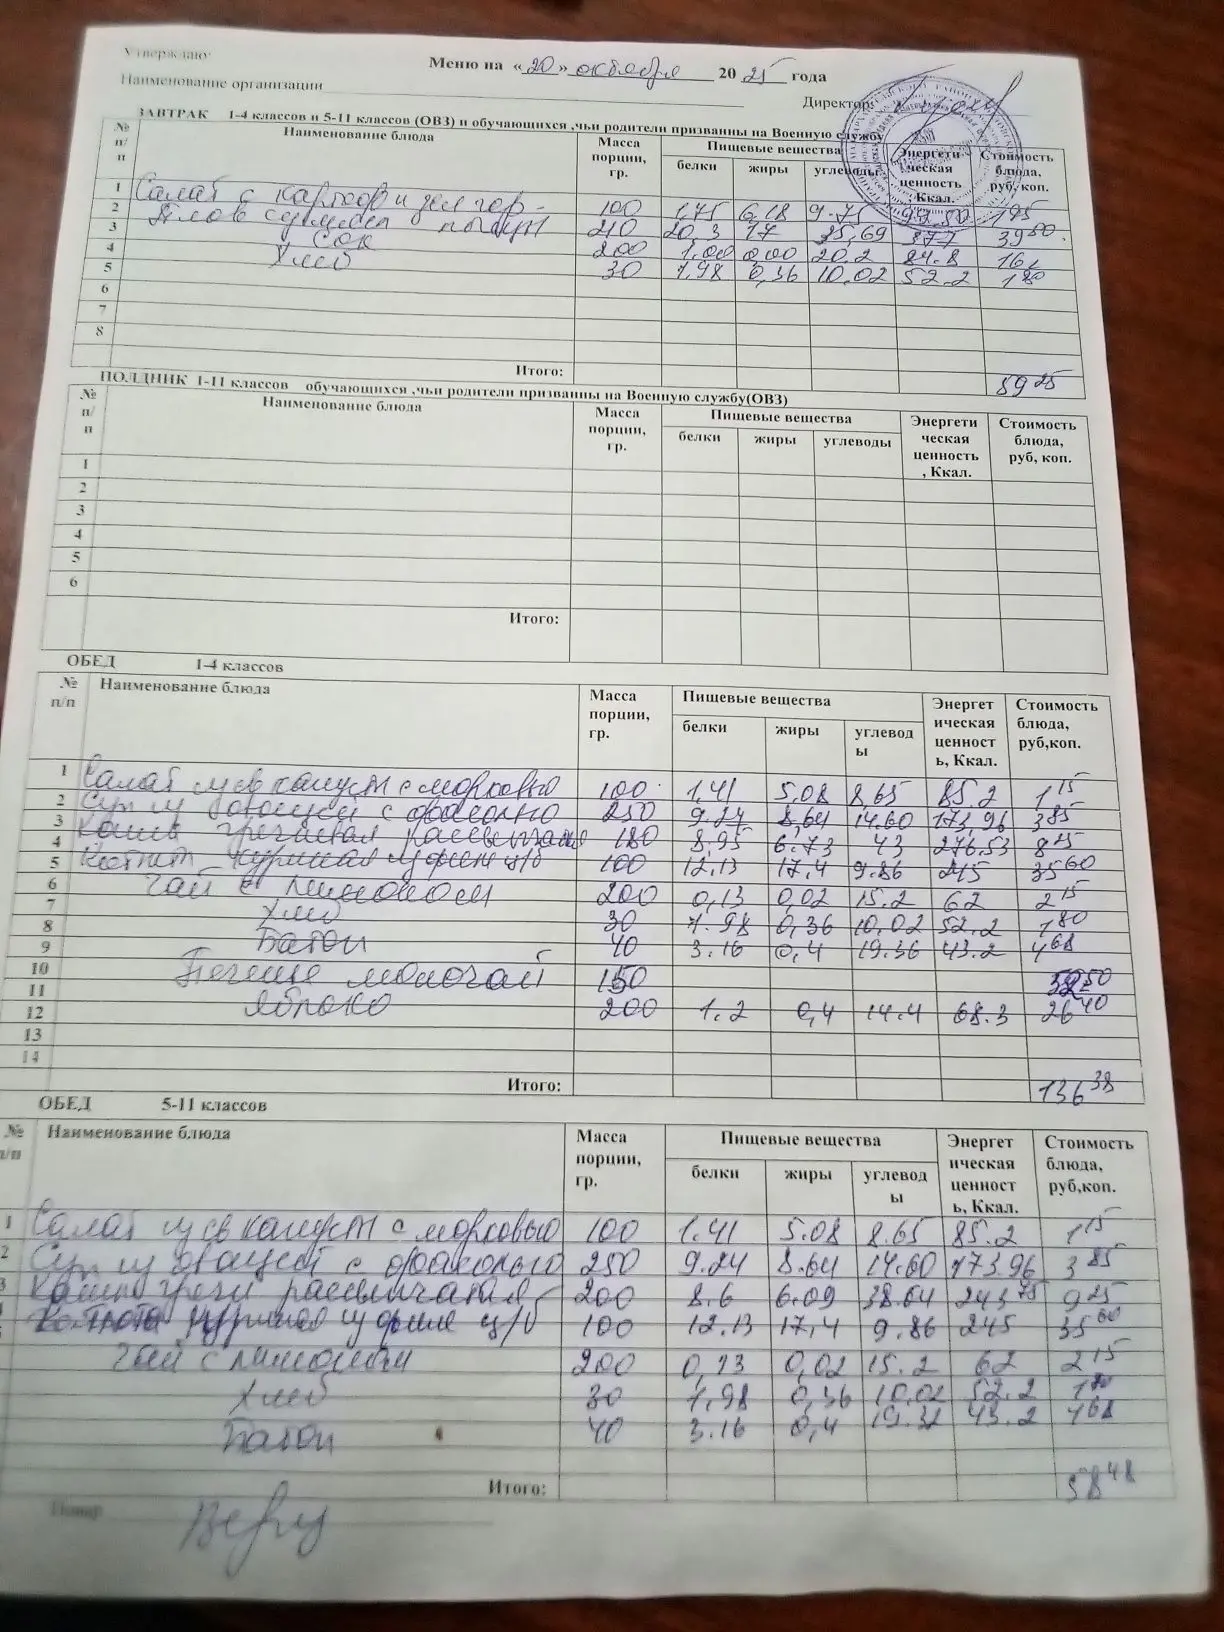 Утверждаю:
Меню на «20» октября 2025 года
Наименование организации
Директор:
ЗАВТРАК 1-4 классов и 5-11 классов (ОВЗ) и обучающихся ,чьи родители призванны на Военную службу
№ п/п Наименование блюда Масса порции, гр. Пищевые вещества Энергети ческая ценность , Ккал. Стоимость блюда, руб, коп.
белки жиры углеводы
1 Салат с картоф и зел гор 100 1,75 6,18 9.75 195
2 Плов 210 20,3 17 35,69 377 39 50
3 Сок 200 1.00 0,00 20.2 84.8 16
4 Хлеб 30 1,98 0,36 10.02 52.2 1 80
5
6
7
8
Итого: 59 25
ПОЛДНИК 1-11 классов обучающихся ,чьи родители призванны на Военную службу(ОВЗ)
№ п/п Наименование блюда Масса порции, гр. Пищевые вещества Энергети ческая ценность , Ккал. Стоимость блюда, руб, коп.
белки жиры углеводы
1
2
3
4
5
6
Итого:
ОБЕД 1-4 классов
№ п/п Наименование блюда Масса порции, гр. Пищевые вещества Энергет ическая ценност ь, Ккал. Стоимость блюда, руб,коп.
белки жиры углевод ы
1 Салат из св капуст с морковью 100 1,41 5,08 8,65 85.2 1 15
2 Суп из овощей с фасолью 250 9.24 8,64 14.60 173,96 3 85
3 Каша гречневая рассыпчатая 180 8.95 6.73 43 276.53 8 25
4 Котлет куриная из филе ц/б 100 12,13 17,4 9.86 245 35 60
5 Чай с лимоном 200 0,13 0,02 15.2 62 2 15
6 Хлеб 30 1.98 0,36 10,02 52.2 1 80
7 Батон 40 3.16 0,4 19.36 43.2 4 68
8 Печенье 150
9 Яблоко 200 1.2 0,4 14.4 68.3 26 40
10
11
12
13
14
Итого: 136 38
ОБЕД 5-11 классов
№ п/п Наименование блюда Масса порции, гр. Пищевые вещества Энергет ическая ценност ь, Ккал. Стоимость блюда, руб,коп.
белки жиры углевод ы
1 Салат из св капуст с морковью 100 1.41 5.08 8.65 85.2 1 15
2 Суп из овощей с фасолью 250 9.24 8.64 14.60 173.96 3 85
3 Каша греч рассыпчатая 200 8.6 6.09 38.64 243 75 9 25
Котлета куриная из филе ц/б 100 12.13 17,4 9.86 245 35 60
Чай с лимоном 200 0,13 0,02 15.2 62 2 15
Хлеб 30 1,98 0,36 10,02 52.2 1 80
Батон 40 3.16 0,4 43.2 4 68
Итого: 58 48
Повар